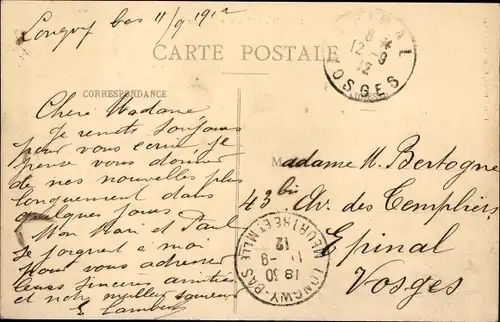 Longwy bas 11/9 1912
CARTE POSTALE
CORRESPONDANCE
ADRESSE
Chère Madame
Je remets toujours
pour vous écrire, je
pense vous donner
de nos nouvelles plus
longuement dans
quelques jours
Mon Mari et Paul
se joignent à moi
pour vous adresser
leurs sincères amitiés
et notre meilleur souvenir
E Lambert
Madame M. Bertogne
43 bis Av. des Templiers
Epinal
Vosges
8
12 -9
12
VOSGES
LONGWY-BAS
18 30
11 -9
12
MEURTHE ET MLLE